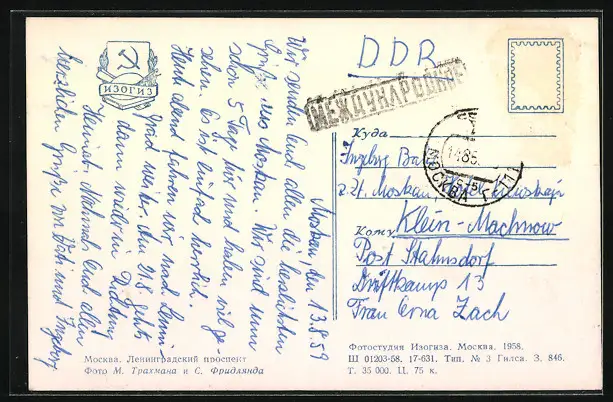 Moskau den 13.8.59
Wir senden Euch allen die herzlichsten
Grüße aus Moskau. Wir sind nun
schon 5 Tage hier und haben viel ge-
sehen. Es ist einfach herrlich.
Heut abend fahren wir nach Lenin-
grad weiter. Am 21.8. geht's
dann wieder in Richtung
Heimat. Nochmals Euch allen
herzlichen Grüße von und Ingeborg
ИЗОГИЗ
DDR
МЕЖДУНАРОДНОЕ
МОСКВА
Куда
Ingeborg
z. Zt. Moskau, Hotel
Кому
Klein-Machnow
Post Stahnsdorf
Driftkamp 13
Frau Erna Zach
Москва. Ленинградский проспект
Фото М. Трахмана и С. Фридлянда
Фотостудия Изогиза. Москва. 1958.
Ш 01203-58. 17-631. Тип. № 3 Гилса. З. 846.
Т. 35 000. Ц. 75 к.